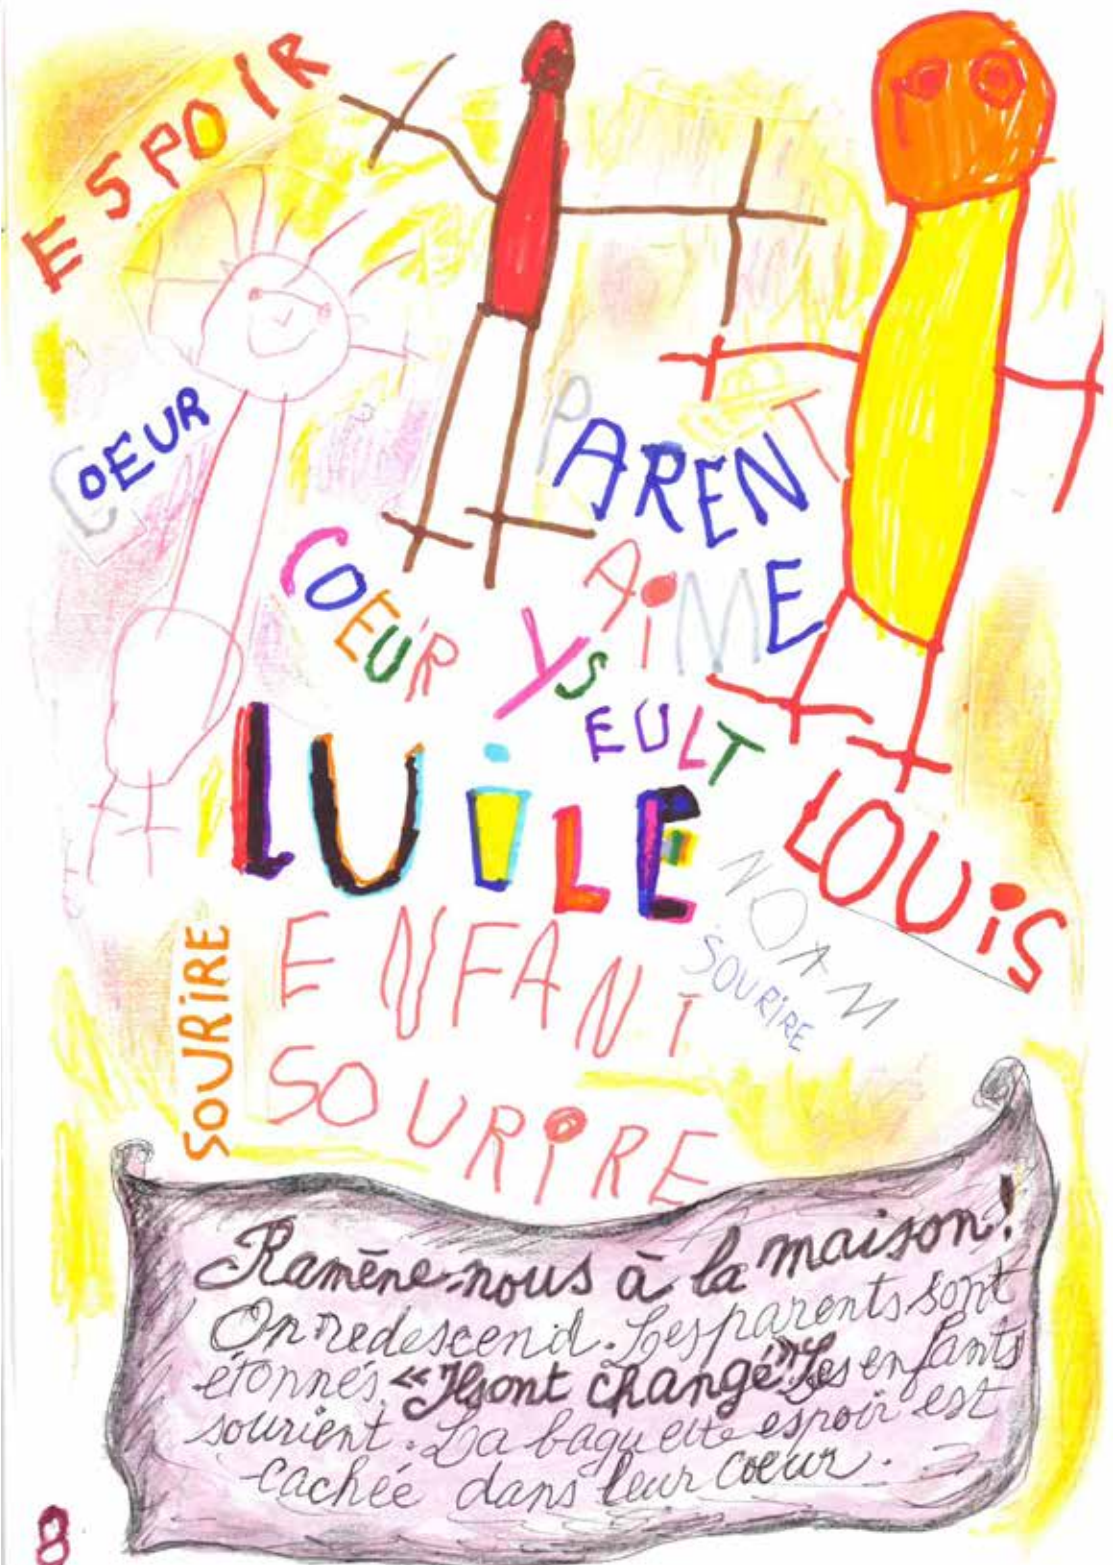 ESPOIR
COEUR
PARENT
COEUR
AiME
YSEULT
LUiLE
LOUiS
NOAM
ENFANT
SOURiRE
SOURiRE
SOURiRE
Ramène-nous à la maison!
On redescend. Les parents sont
étonnés «Ils ont changé». Les enfants
sourient. La baguette espoir est
cachée dans leur coeur.
8